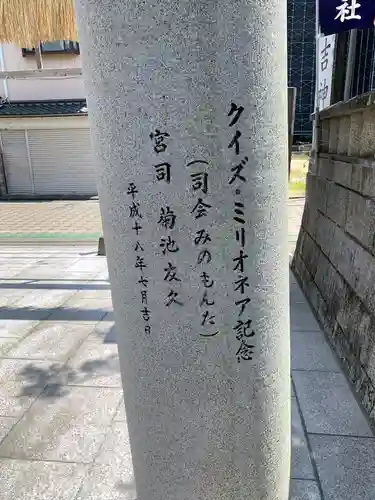 クイズ・ミリオネア記念
(司会 みのもんた)
宮司 菊池友久
平成十八年七月吉日
社
吉神